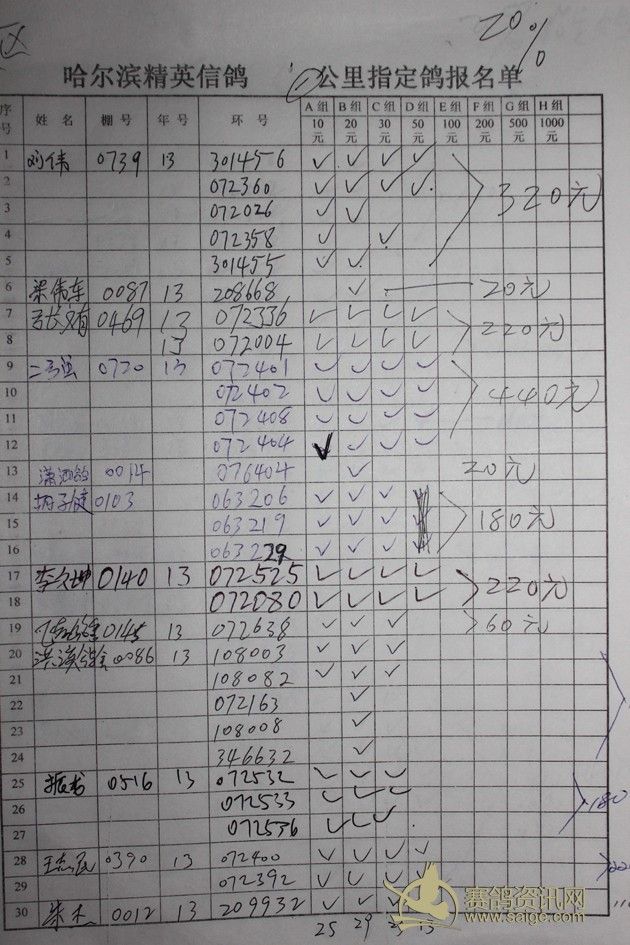 区
20%
哈尔滨精英信鸽 公里指定鸽报名单
序号 姓名 棚号 年号 环号 A组10元 B组20元 C组30元 D组50元 E组100元 F组200元 G组500元 H组1000元
1 刘伟 0739 13 301456 ✓ ✓ ✓ ✓
2 072360 ✓ ✓ ✓ ✓
3 072026 ✓ ✓ 320元
4 072358 ✓ ✓
5 301455 ✓ ✓
6 梁伟车 0087 13 208668 ✓ 20元
7 0469 13 072336 ✓ ✓ ✓ ✓ 220元
8 13 072004 ✓ ✓ ✓ ✓
9 0720 13 072401 ✓ ✓ ✓ ✓
10 072402 ✓ ✓ ✓ ✓ 440元
11 072408 ✓ ✓ ✓ ✓
12 072404 ✓ ✓ ✓ ✓
13 0014 076404 ✓ 20元
14 胡子健 0103 063206 ✓ ✓ ✓
15 063219 ✓ ✓ ✓ 180元
16 063229 ✓ ✓ ✓
17 李久坤 0140 13 072525 ✓ ✓ ✓ ✓ 220元
18 072080 ✓ ✓ ✓ ✓
19 0145 13 072638 ✓ ✓ ✓ 60元
20 0086 13 108003 ✓ ✓ ✓
21 108082 ✓ ✓ ✓
22 072163 ✓
23 108008 ✓
24 346632 ✓
25 0516 13 072532 ✓ ✓ ✓
26 072533 ✓ ✓ ✓ 180
27 072536 ✓ ✓ ✓
28 王志民 0390 13 072400 ✓ ✓ ✓ ✓
29 072392 ✓ ✓ ✓ ✓
30 朱杰 0012 13 209932 ✓ ✓ ✓
25 29 23 13
赛鸽资讯网
www.saige.com